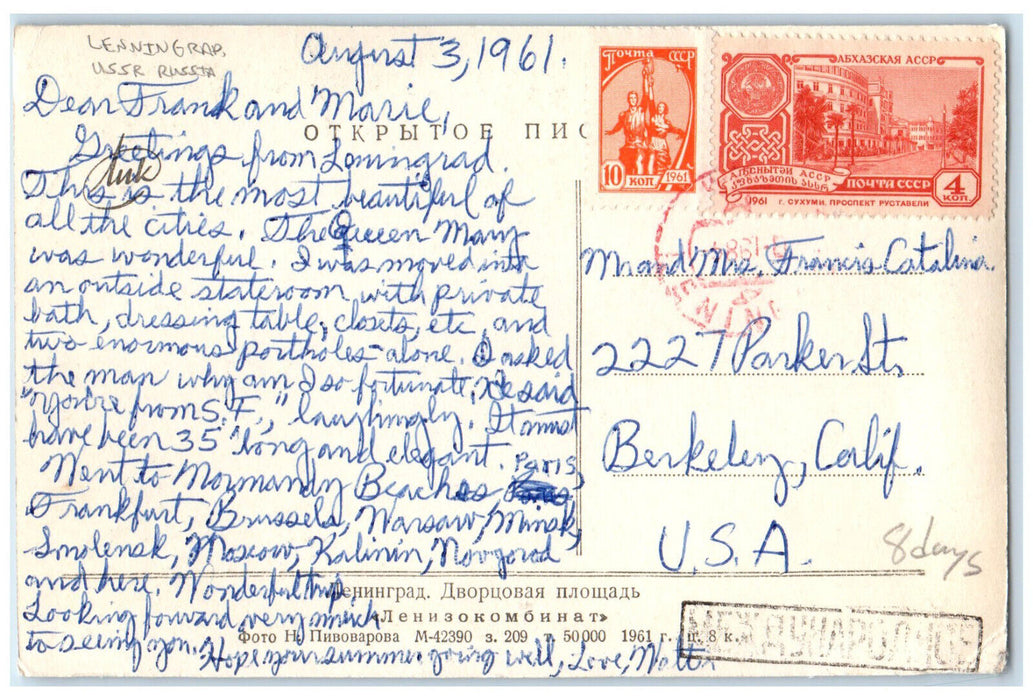 LENNINGRAD,
USSR RUSSIA
August 3, 1961.
Dear Frank and Marie,
Greetings from Leningrad.
This is the most beautiful of
all the cities. The Queen Mary
was wonderful. I was moved into
an outside stateroom with private
bath, dressing table, closets, etc, and
two enormous portholes - alone. I asked
the man why am I so fortunate. He said
"you're from S.F.," laughingly. It must
have been 35' long and elegant.
Went to Normandy Beaches Paris,
Frankfurt, Brussels, Warsaw, Minsk,
Smolensk, Moscow, Kalinin, Novgorod
and here. Wonderful trip.
Looking forward very much
to seeing you. Hope your summer going well, Love, Walt.
ОТКРЫТОЕ ПИС
Почта СССР
10 КОП 1961
АБХАЗСКАЯ АССР
АԤСНЫТӘИ АССР
ПОЧТА СССР
4 КОП
1961 г. СУХУМИ. ПРОСПЕКТ РУСТАВЕЛИ
Mr and Mrs. Francis Catalina.
2227 Parker St.
Berkeley, Calif.
U.S.A.
8 days
Ленинград. Дворцовая площадь
«Ленизокомбинат»
Фото Н. Пивоварова М-42390 з. 209 т. 50000 1961 г. ц. 8 к.
МЕЖДУНАРОДНОЕ